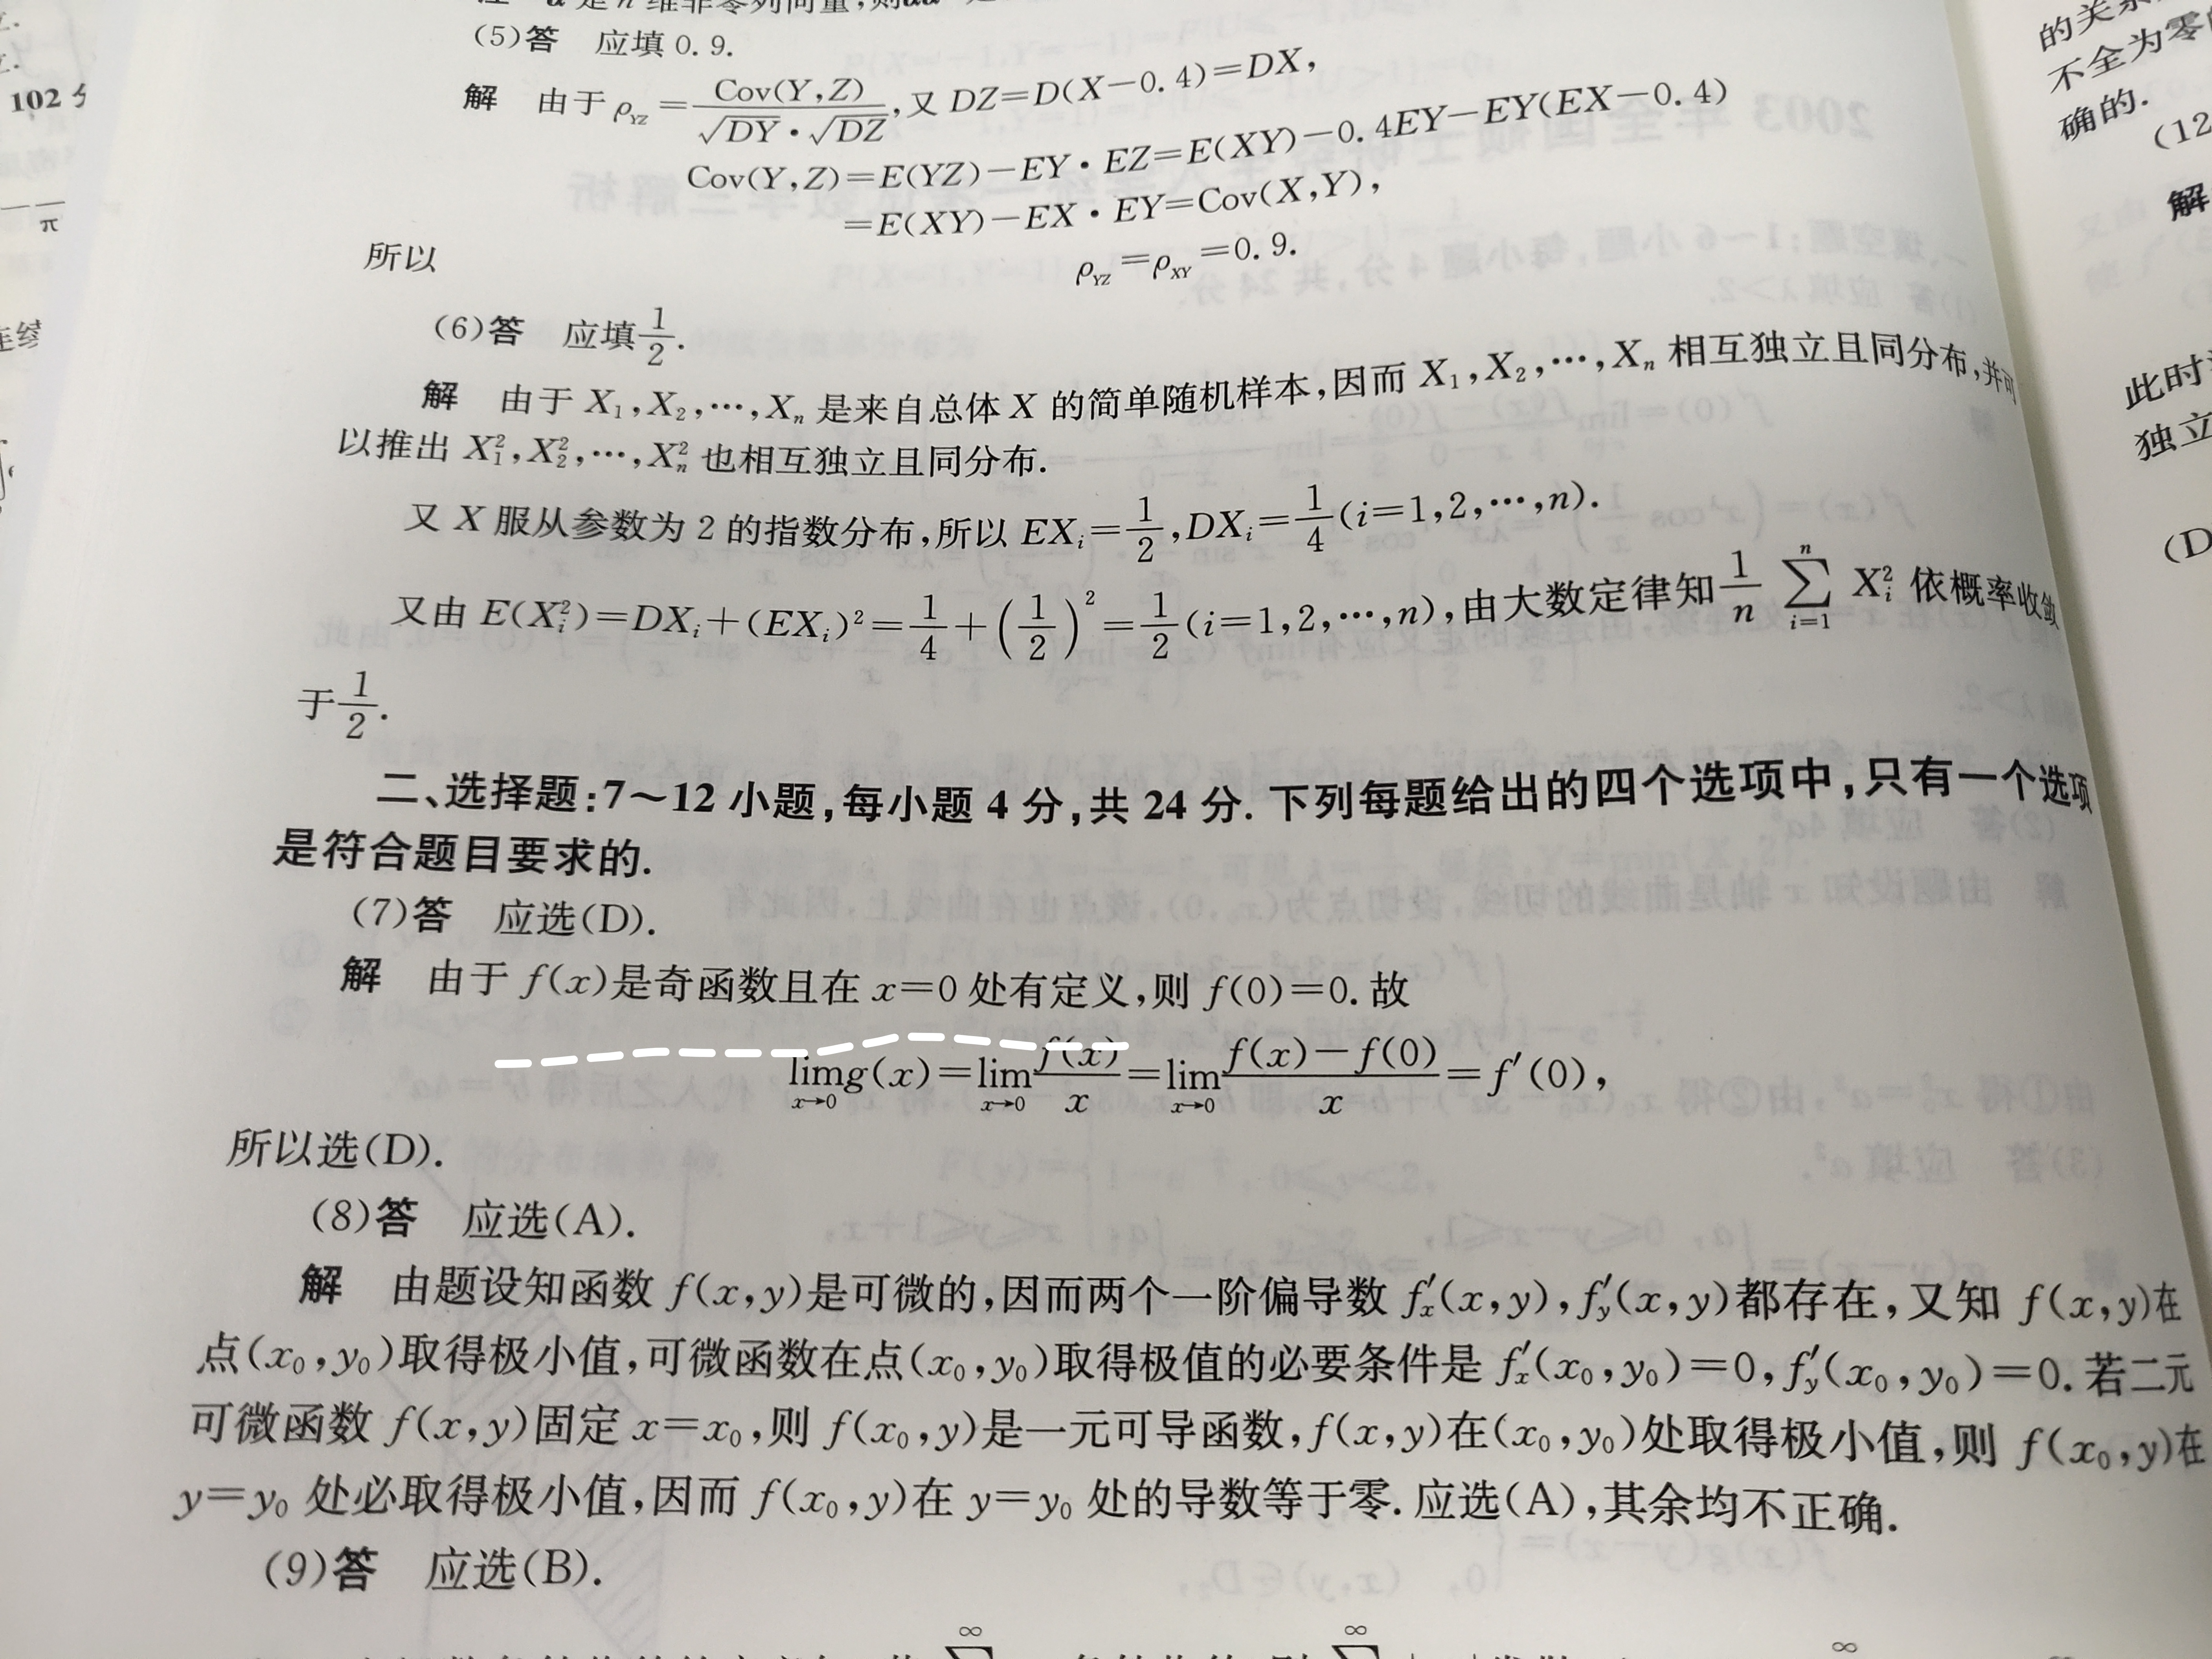 (5)答 应填 0.9.
解 由于 ρ_{YZ}=\frac{Cov(Y,Z)}{\sqrt{DY}·\sqrt{DZ}},又 DZ=D(X-0.4)=DX,
Cov(Y,Z)=E(YZ)-EY·EZ=E(XY)-0.4EY-EY(EX-0.4)
=E(XY)-EX·EY=Cov(X,Y),
所以 ρ_{YZ}=ρ_{XY}=0.9.
(6)答 应填\frac{1}{2}.
解 由于 X_1,X_2,…,X_n 是来自总体 X 的简单随机样本,因而 X_1,X_2,…,X_n 相互独立且同分布,并可
以推出 X_1^2,X_2^2,…,X_n^2 也相互独立且同分布.
又 X 服从参数为 2 的指数分布,所以 EX_i=\frac{1}{2},DX_i=\frac{1}{4}(i=1,2,…,n).
又由 E(X_i^2)=DX_i+(EX_i)^2=\frac{1}{4}+(\frac{1}{2})^2=\frac{1}{2}(i=1,2,…,n),由大数定律知\frac{1}{n}\sum_{i=1}^{n}X_i^2 依概率收敛
于\frac{1}{2}.
二、选择题:7～12 小题,每小题 4 分,共 24 分. 下列每题给出的四个选项中,只有一个选项
是符合题目要求的.
(7)答 应选(D).
解 由于 f(x)是奇函数且在 x=0 处有定义,则 f(0)=0. 故
\lim_{x→0}g(x)=\lim_{x→0}\frac{f(x)}{x}=\lim_{x→0}\frac{f(x)-f(0)}{x}=f'(0),
所以选(D).
(8)答 应选(A).
解 由题设知函数 f(x,y)是可微的,因而两个一阶偏导数 f'_x(x,y),f'_y(x,y)都存在,又知 f(x,y)在
点(x_0,y_0)取得极小值,可微函数在点(x_0,y_0)取得极值的必要条件是 f'_x(x_0,y_0)=0,f'_y(x_0,y_0)=0. 若二元
可微函数 f(x,y)固定 x=x_0,则 f(x_0,y)是一元可导函数,f(x,y)在(x_0,y_0)处取得极小值,则 f(x_0,y)在
y=y_0 处必取得极小值,因而 f(x_0,y)在 y=y_0 处的导数等于零. 应选(A),其余均不正确.
(9)答 应选(B).
102
π
的关系
不全为零
确的.
(12
解
此时
独立
(D